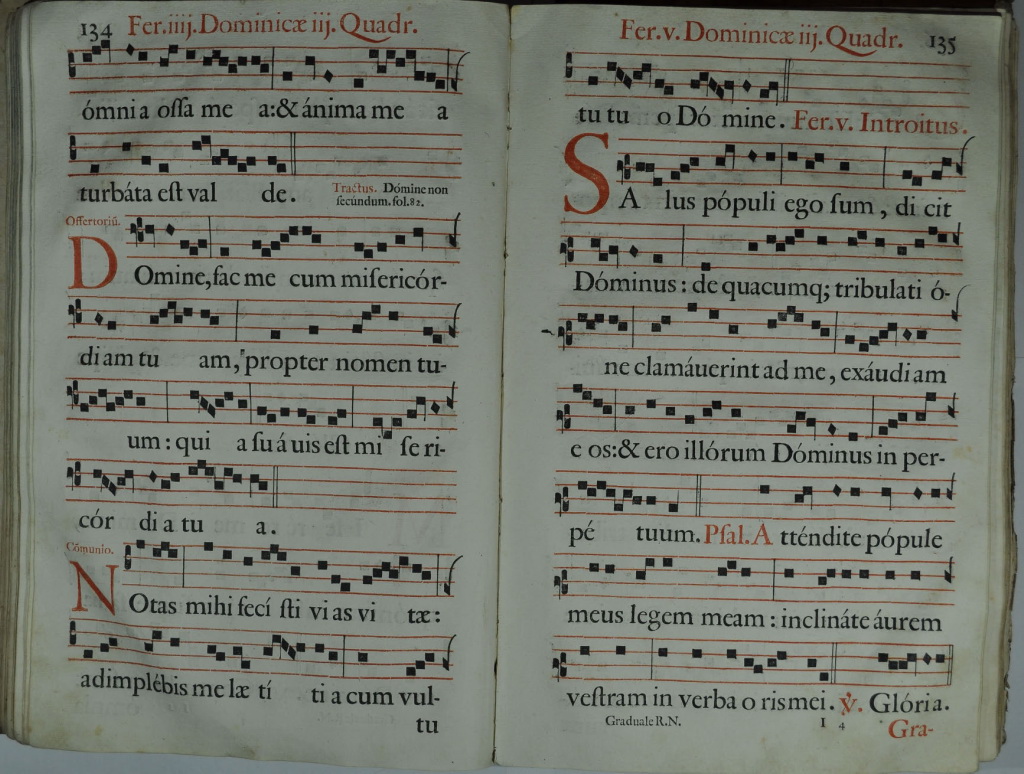 134 Fer.iiij.Dominicæ iij. Quadr.
ómnia oſſa me a:& ánima me a
turbáta eſt val de. Tractus. Dómine non
ſecúndum. fol.82.
Offertoriũ.
DOmine,fac me cum miſericór-
diam tu am, propter nomen tu-
um : qui a ſu á uis eſt mi ſe ri-
cór di a tu a.
Cõmunio.
NOtas mihi fecí ſti vi as vi tæ:
adimplébis me læ tí ti a cum vul-
tu
Fer.v. Dominicæ iij. Quadr. 135
tu tu o Dó mine. Fer.v. Introitus.
SA lus pópuli ego ſum , di cit
Dóminus : de quacumq; tribulati ó-
ne clamáuerint ad me, exáudi am
e os:& ero illórum Dóminus in per-
pé tuum. Pſal. A tténdite pópule
meus legem meam : inclináte áurem
veſtram in verba o ris mei. ℣. Glória.
Graduale R.N. I 4 Gra-